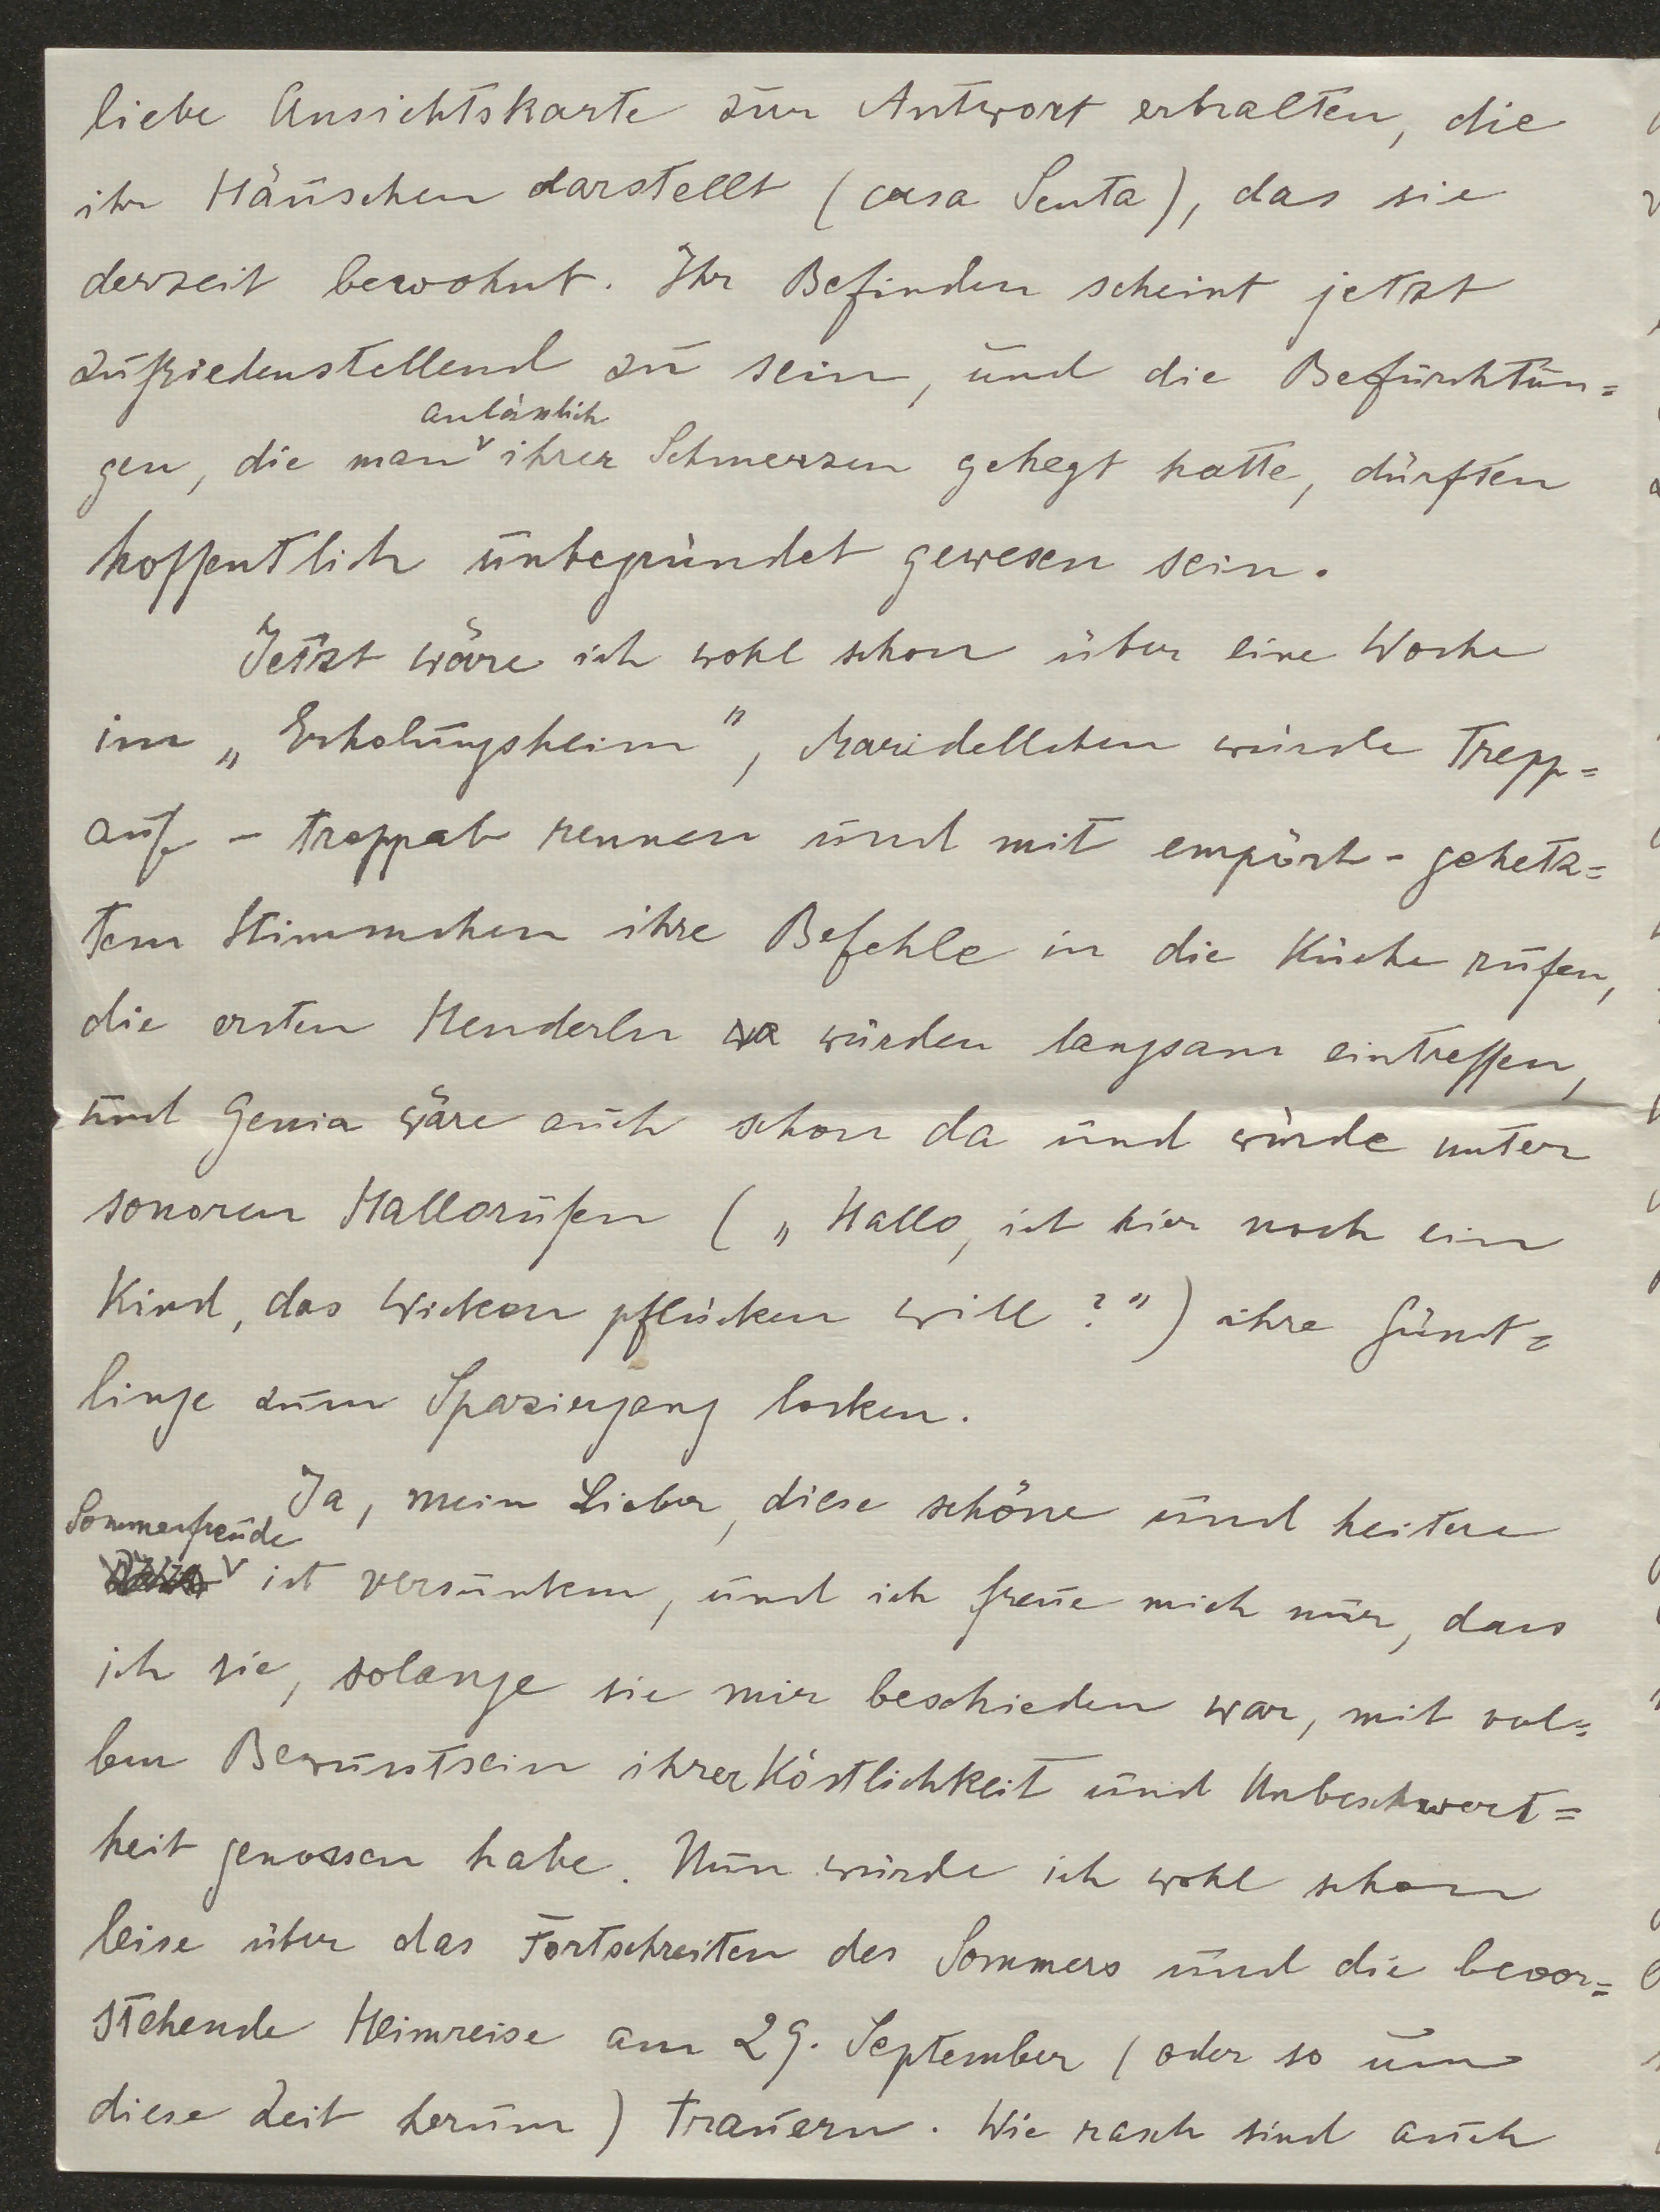 liebe Ansichtskarte zur Antwort erhalten, die
ihr Häuschen darstellt (casa Senta), das sie
derzeit bewohnt. Ihr Befinden scheint jetzt
zufriedenstellend zu sein, und die Befürchtun=
anlässlich
gen, die man ihrer Schmerzen gehegt hatte, dürften
hoffentlich unbegründet gewesen sein.
Jetzt wäre ich wohl schon über eine Woche
im „Erholungsheim", Maridellchen würde Trepp=
auf - treppab rennen und mit empört-gehetz=
tem Stimmchen ihre Befehle in die Küche rufen,
die ersten Henderln würden langsam eintreffen,
und Genia wäre auch schon da und würde unter
sonoren Hallorufen („Hallo, ist hier noch ein
Kind, das Wicken pflücken will?") ihre Günst=
linge zum Spaziergang locken.
Ja, mein Lieber, diese schöne und heitere
Sommerfreude
ist versunken, und ich freue mich nur, dass
ich sie, solange sie mir beschieden war, mit vol=
lem Bewusstsein ihrer Köstlichkeit und Unbeschwert=
heit genossen habe. Nun würde ich wohl schon
leise über das Fortschreiten des Sommers und die bevor=
stehende Heimreise am 29. September (oder so um
diese Zeit herum) trauern. Wie rasch sind auch